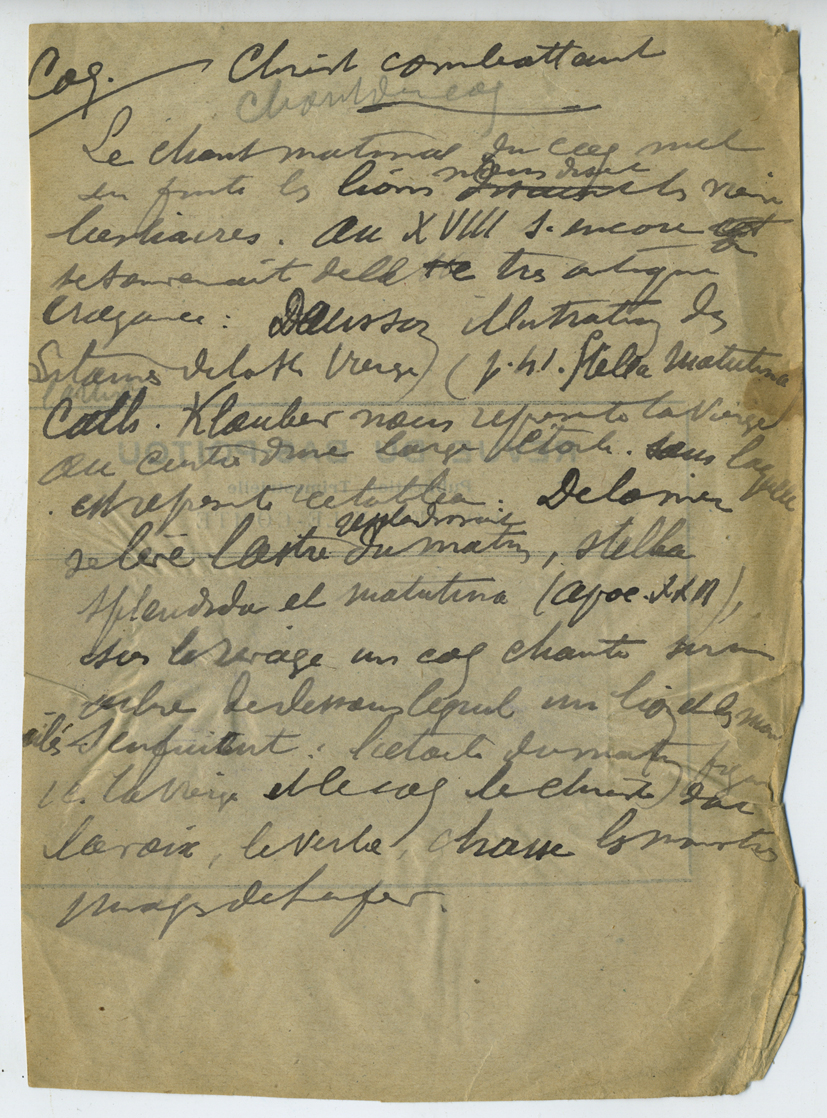 Coq. Christ combattant
Chant du coq
Le chant matinal du coq met
en fuite les lions nous disent les vieux
bestiaires. Au XVIII s. encore on
se souvenait de cette très antique
croyance: Dans son illustration des
Litanies de la Ste Vierge (p. 41. Stella Matutina
Cath. Klauber nous represente la Vierge
au centre d'une large étoile. sous laquelle
est represente ce tableau: De la mer
se lève l'astre du matin, stella
splendida et matutina (Apoc. XXII),
sur le rivage un coq chante sur un
arbre de dessous lequel un lion et les
ailés s'enfuient: l'étoile du matin figure
ici la Vierge et le coq le Christ dont
la voix, le verbe, chasse les monstres
images de l'enfer.
REVUE DU BAS-POITOU